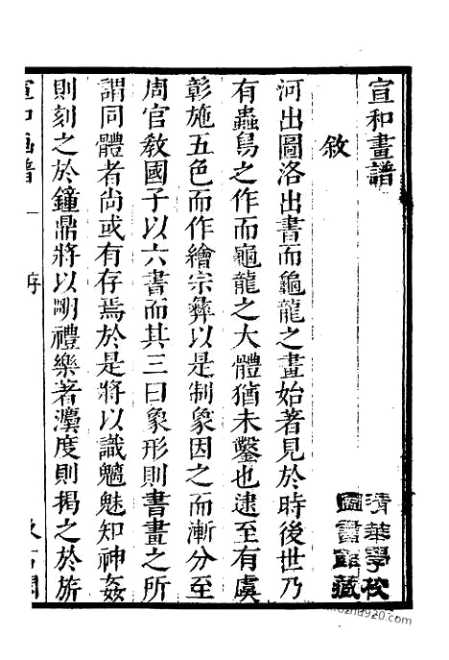 宣和畫譜
敘
河出圖洛出書而龜龍之畫始著見於時後世乃
有蟲鳥之作而龜龍之大體猶未鑿也逮至有虞
彰施五色而作繪宗彝以是制象因之而漸分至
周官敎國子以六書而其三曰象形則書畫之所
謂同體者尚或有存焉於是將以識魑魅知神姦
則刻之於鐘鼎將以明禮樂著灋度則揭之於旂
清華學校
圖書館藏
宣和畫譜 序